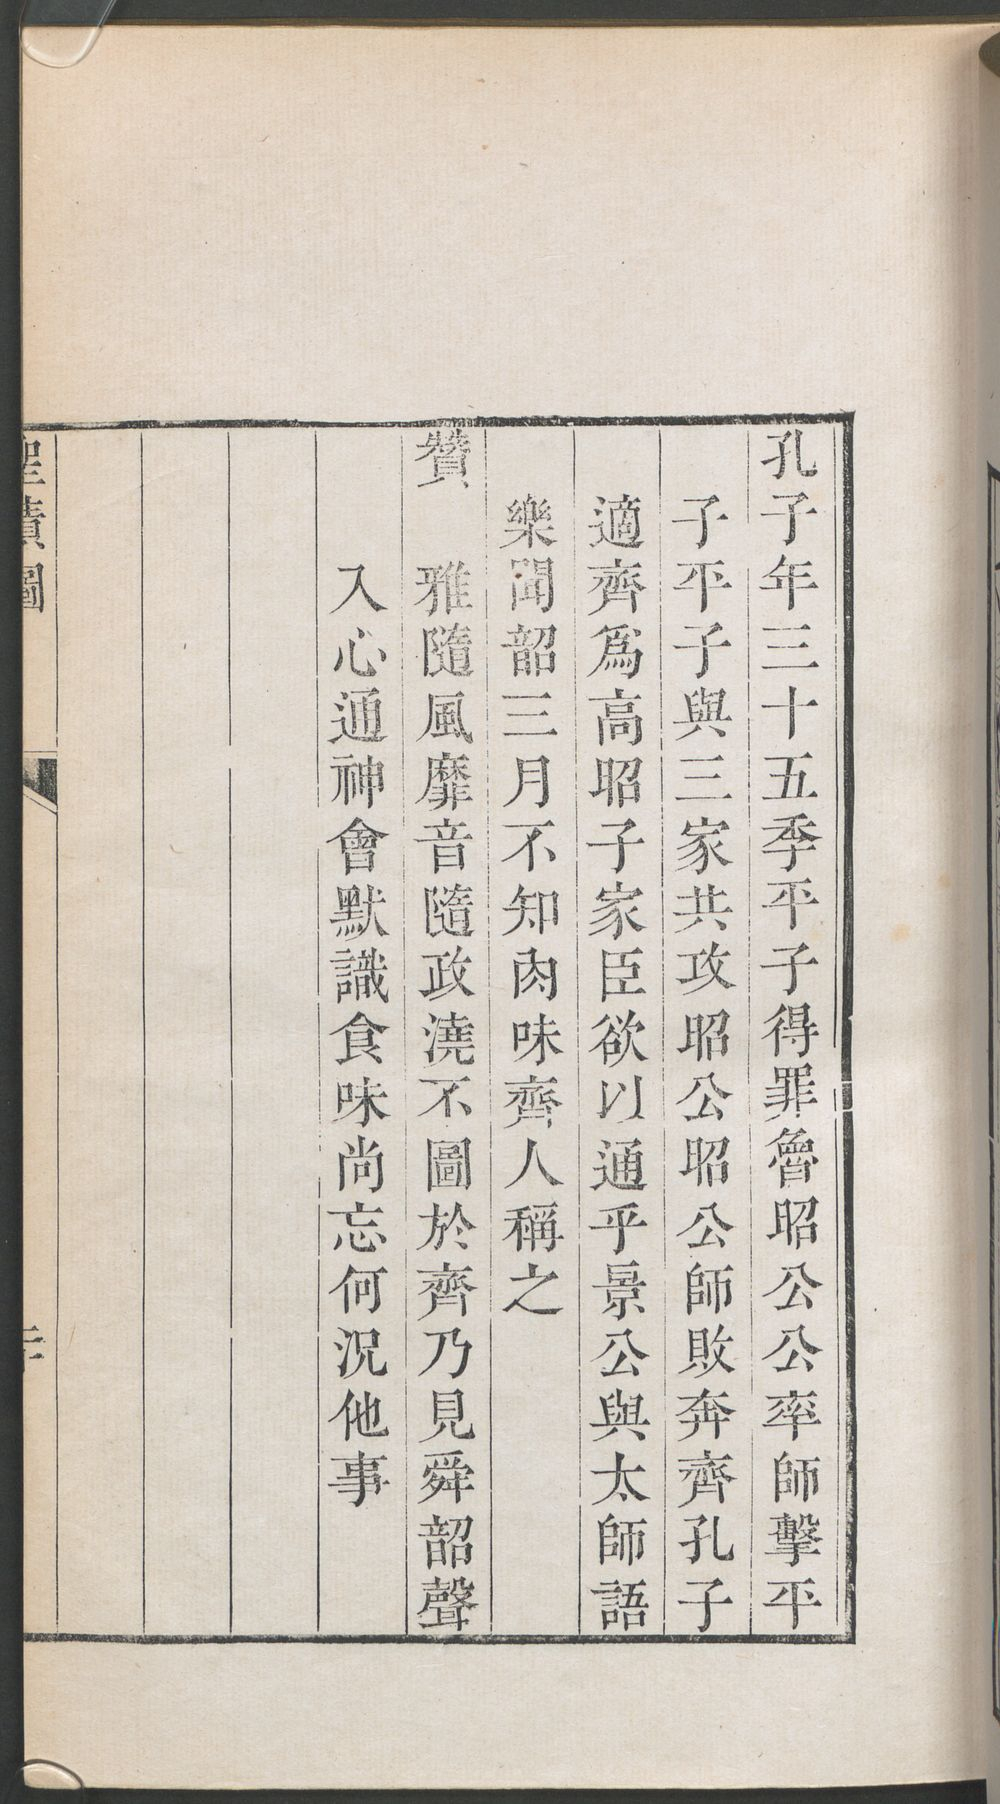 孔子年三十五季平子得罪魯昭公公率師擊平
子平子與三家共攻昭公昭公師敗奔齊孔子
適齊爲高昭子家臣欲以通乎景公與太師語
樂聞韶三月不知肉味齊人稱之
贊 雅隨風靡音隨政澆不圖於齊乃見舜韶聲
入心通神會默識食味尚忘何況他事
聖蹟圖